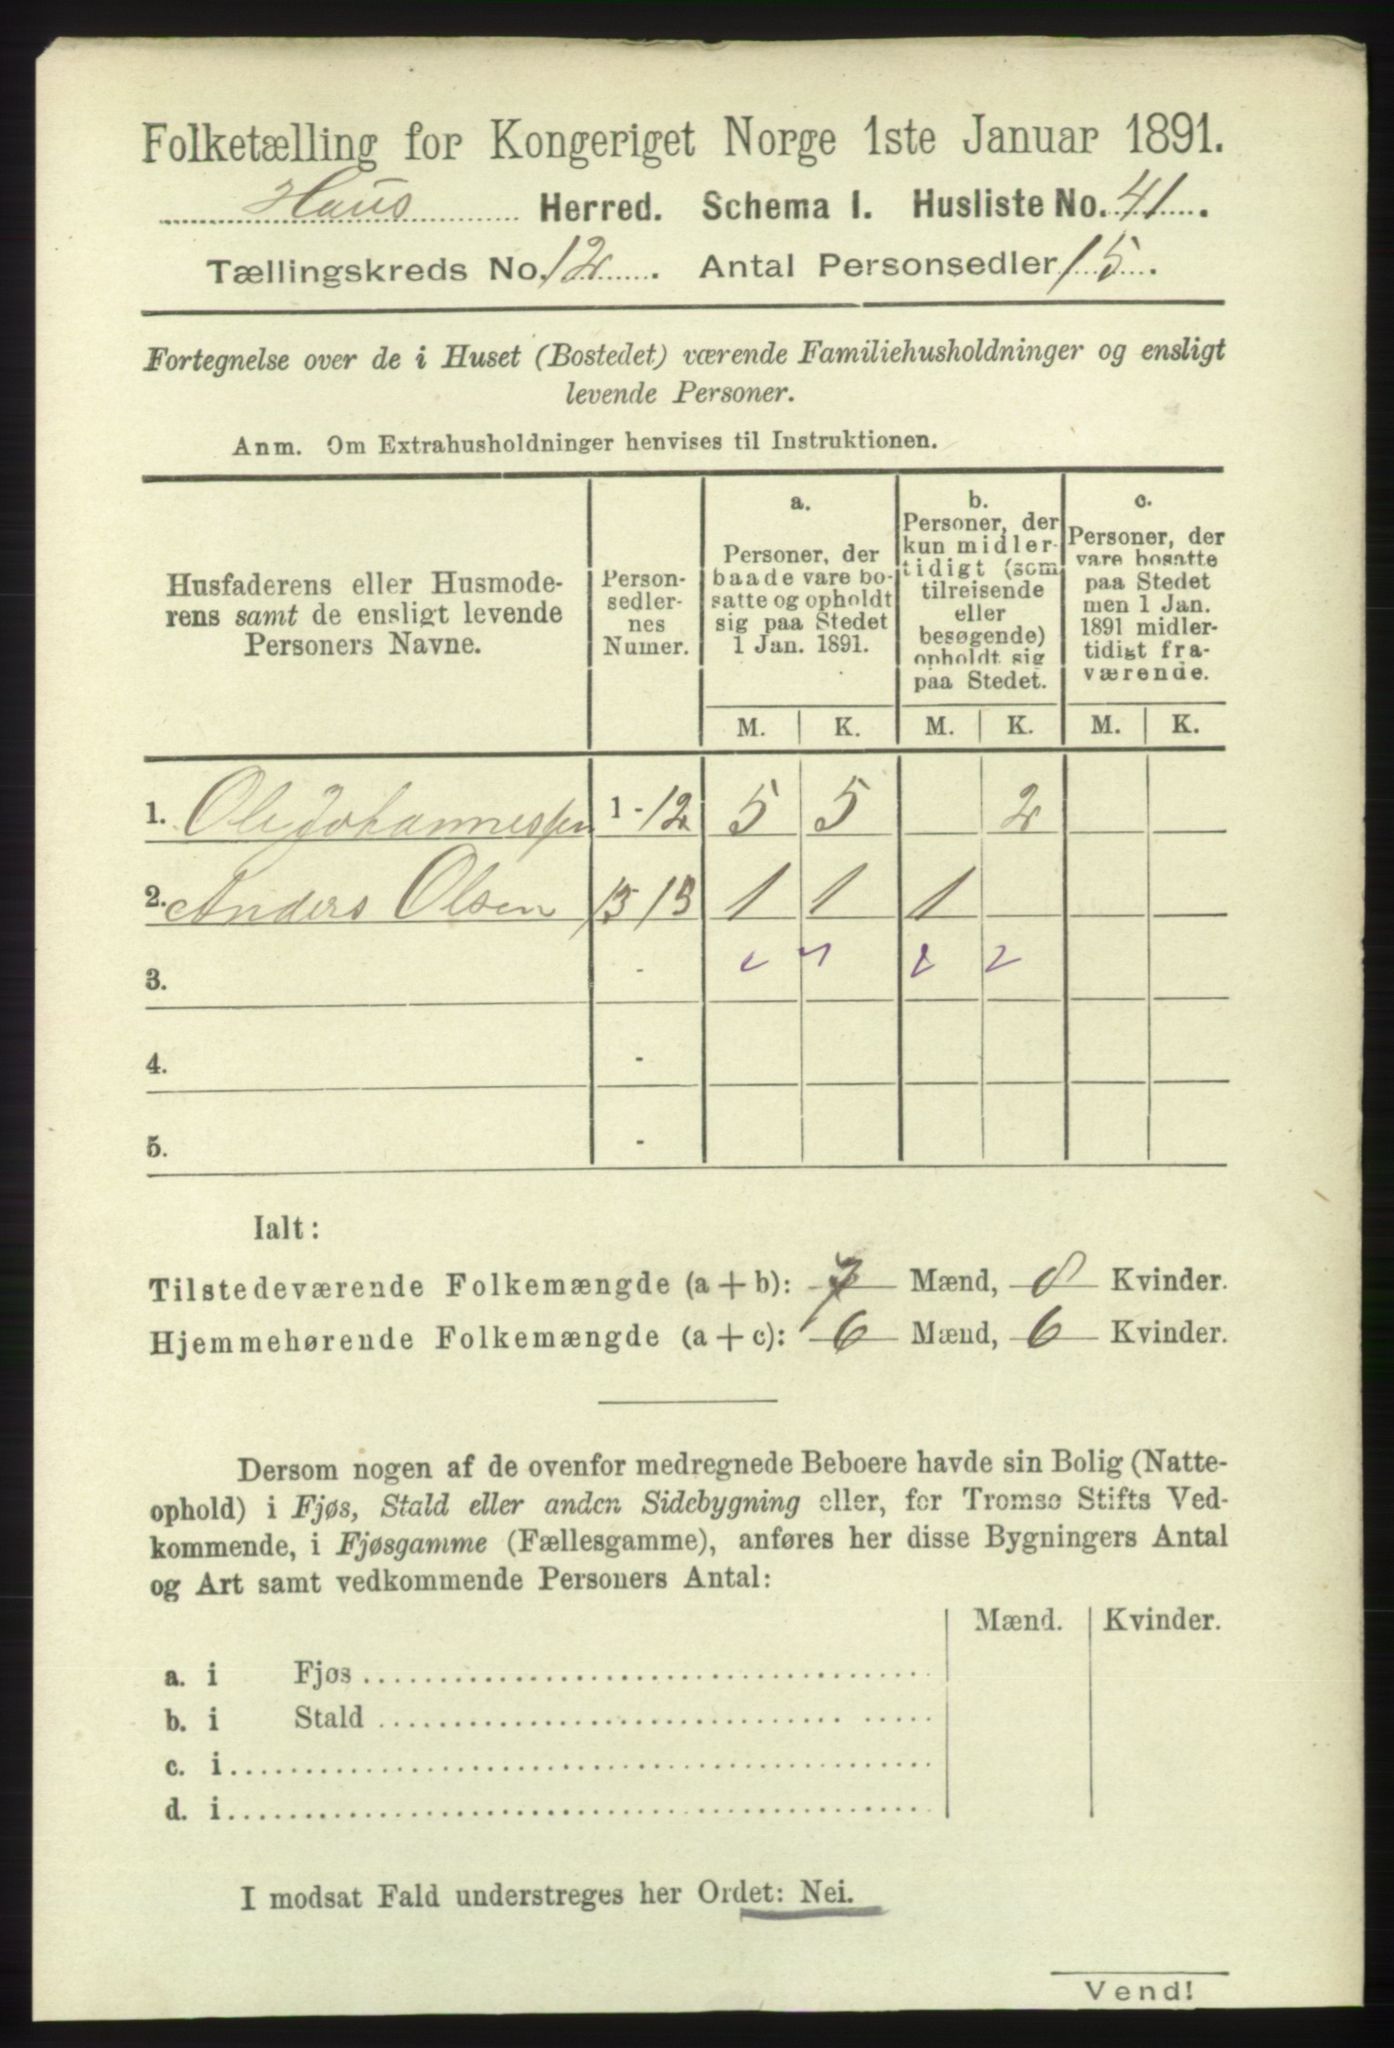 Folketælling for Kongeriget Norge 1ste Januar 1891.
Haus Herred. Schema I. Husliste No. 41.
Tællingskreds No. 12. Antal Personsedler 15.
Fortegnelse over de i Huset (Bostedet) værende Familiehusholdninger og ensligt
levende Personer.
Anm. Om Extrahusholdninger henvises til Instruktionen.
Husfaderens eller Husmode-
rens samt de ensligt levende
Personers Navne.
Person-
sedler-
nes
Numer.
a.
Personer, der
baade vare bo-
satte og opholdt
sig paa Stedet
1 Jan. 1891.
b.
Personer, der
kun midler-
tidigt (som
tilreisende
eller
besøgende)
opholdt sig
paa Stedet.
c.
Personer, der
vare bosatte
paa Stedet
men 1 Jan.
1891 midler-
tidigt fra-
værende.
M. K. M. K. M. K.
1. Ole Johannessen 1-12 5 5 2
2. Anders Olsen 13 15 1 1 1
3. -
4. -
5. -
Ialt:
Tilstedeværende Folkemængde (a + b): 7 Mænd, 8 Kvinder.
Hjemmehørende Folkemængde (a + c): 6 Mænd, 6 Kvinder.
Dersom nogen af de ovenfor medregnede Beboere havde sin Bolig (Natte-
ophold) i Fjøs, Stald eller anden Sidebygning eller, for Tromsø Stifts Ved-
kommende, i Fjøsgamme (Fællesgamme), anføres her disse Bygningers Antal
og Art samt vedkommende Personers Antal:
Mænd. Kvinder.
a. i Fjøs
b. i Stald
c. i
d. i
I modsat Fald understreges her Ordet: Nei.
Vend!